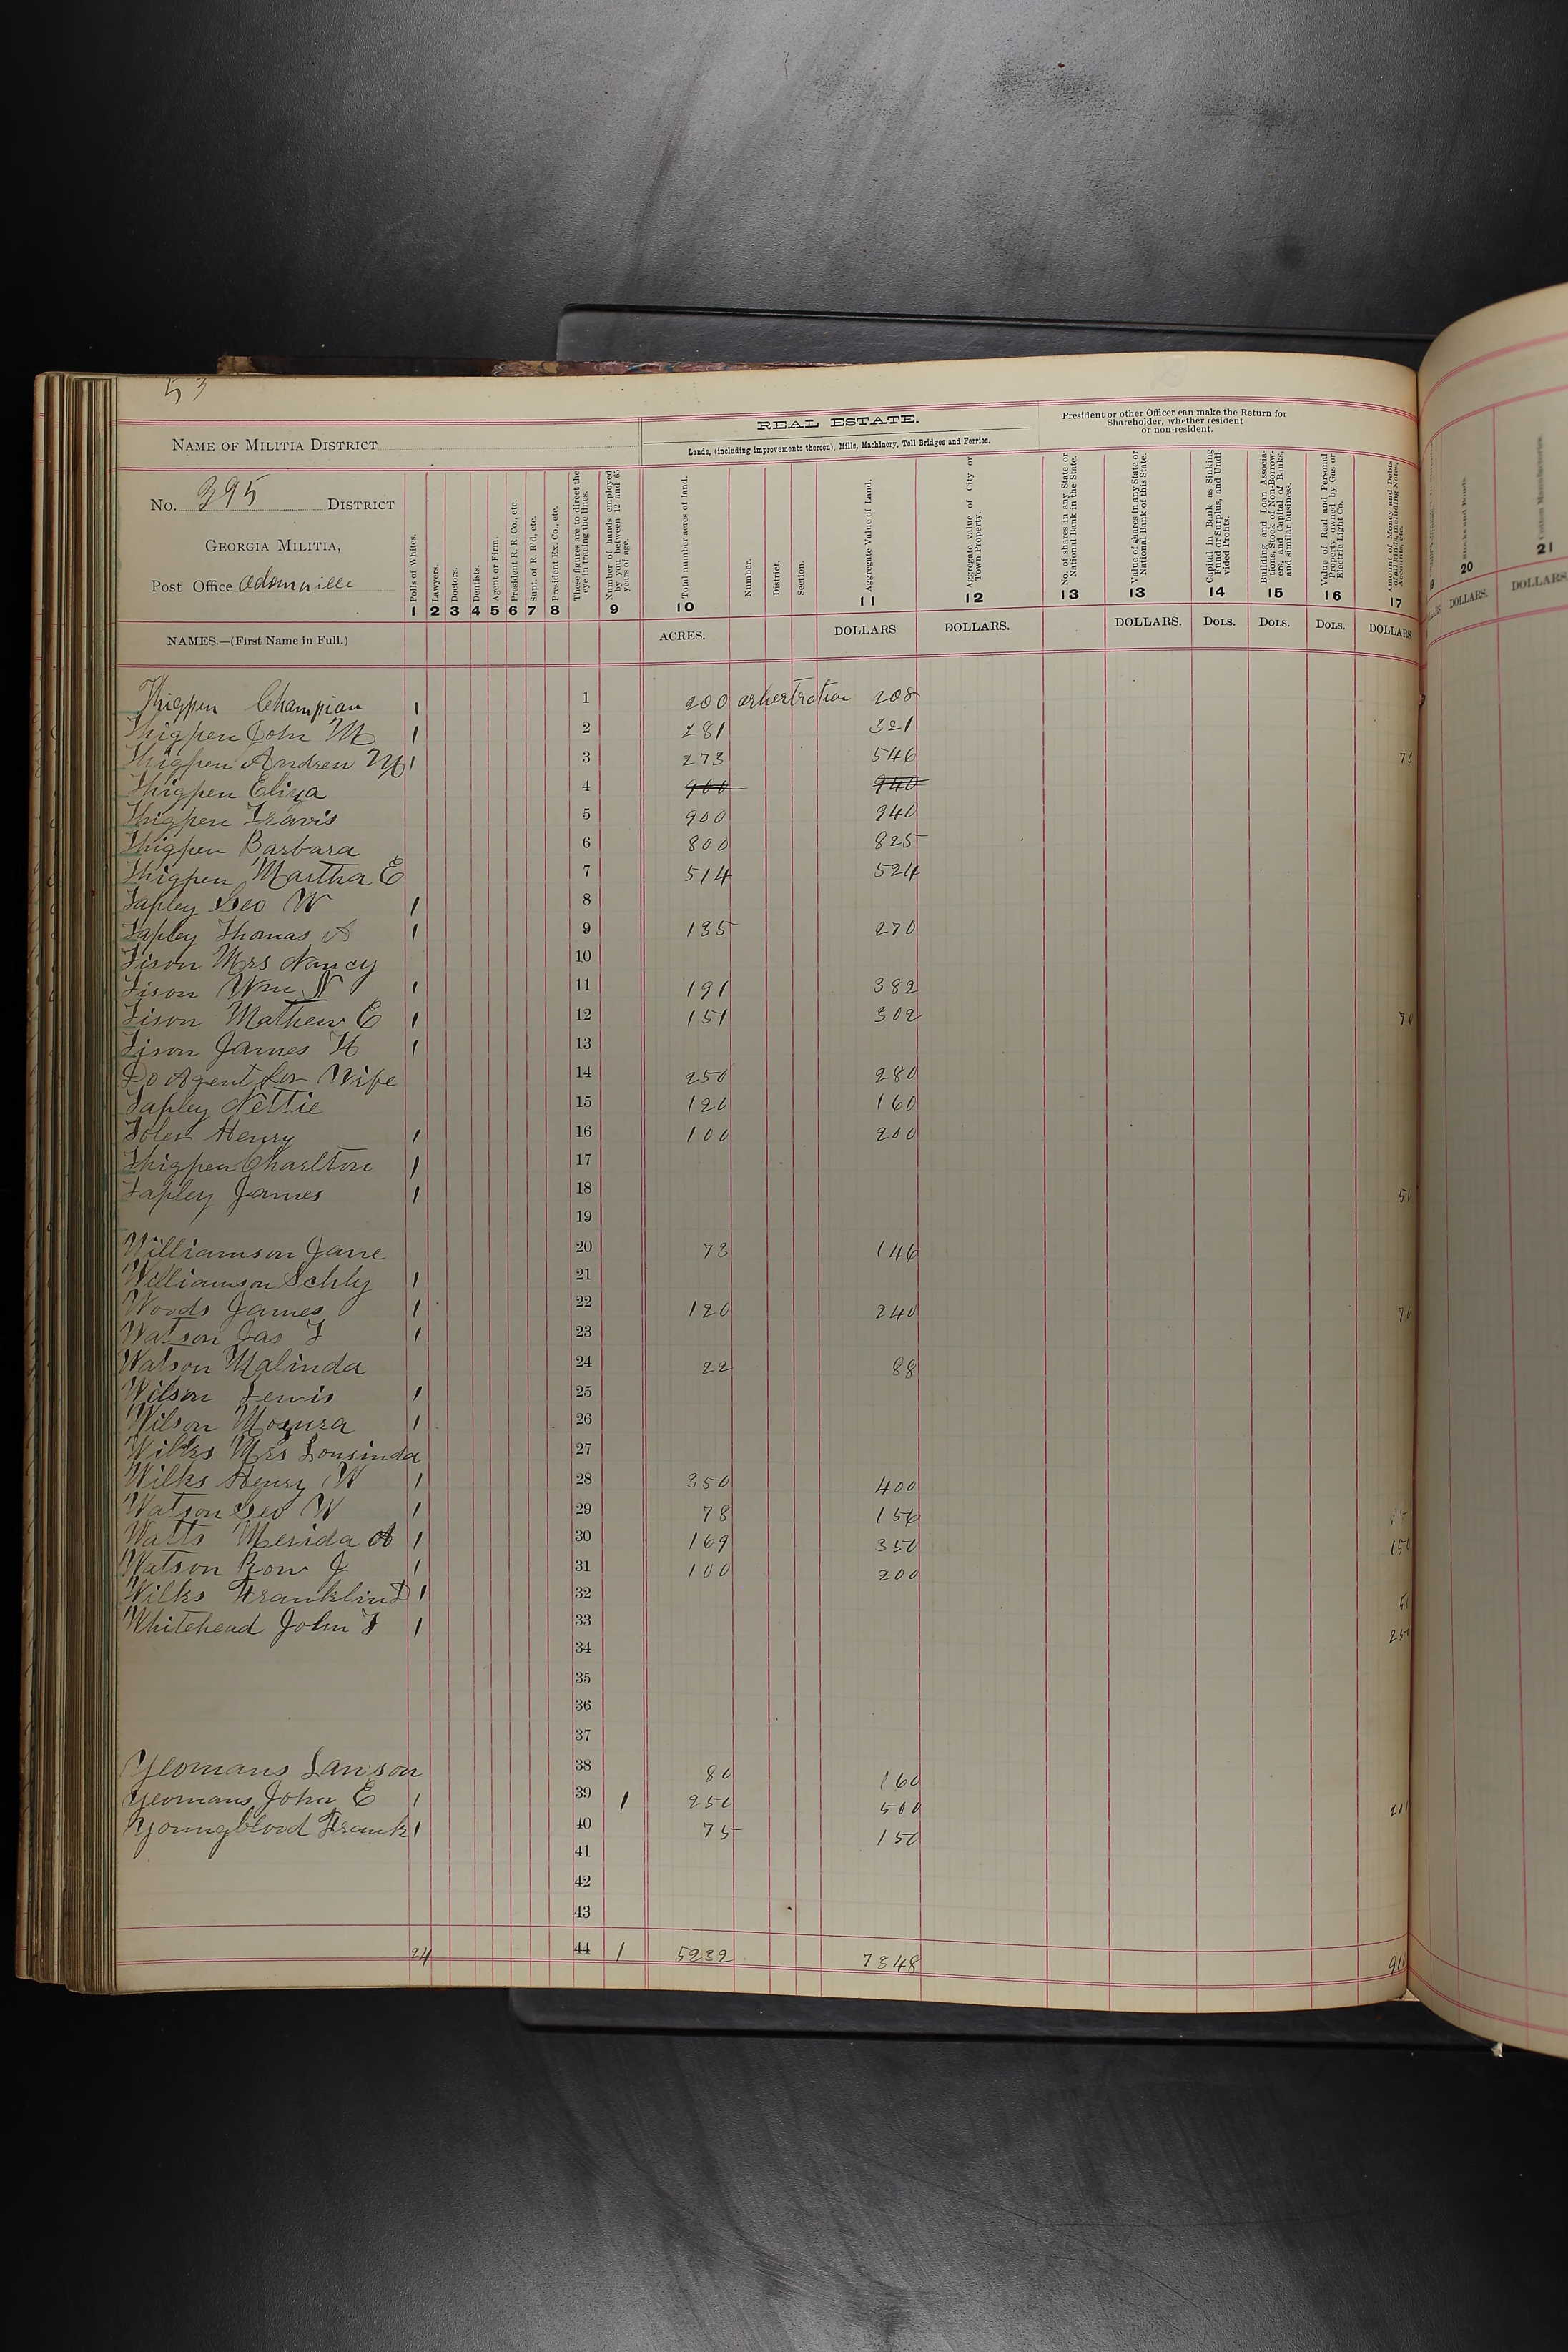 53
REAL ESTATE.
President or other Officer can make the Return for
Shareholder, whether resident
or non-resident.
NAME OF MILITIA DISTRICT
Lands, (including improvements thereon), Mills, Machinery, Toll Bridges and Ferries.
No. 395 DISTRICT
GEORGIA MILITIA,
Post Office
Polls of Whites.
Lawyers.
Doctors.
Dentists.
Agent or Firm.
President R. R. Co., etc.
Supt. of R. R'd, etc.
President Ex. Co., etc.
These figures are to direct the
eye in tracing the lines.
Number of hands employed
by you between 12 and 65
years of age.
Total number acres of land.
Number.
District.
Section.
Aggregate Value of Land.
Aggregate value of City or
Town Property.
No. of shares in any State or
National Bank in the State.
Value of shares in any State or
National Bank of this State.
Capital in Bank as Sinking
Fund or Surplus, and Undi-
vided Profits.
Building and Loan Associa-
tions, Stock of Non-Borrow-
ers, and Capital of Banks,
and similar business.
Value of Real and Personal
Property owned by Gas or
Electric Light Co.
Amount of Money and Debts
of all kinds, including Notes,
Accounts, etc.
Stocks and Bonds.
Cotton Manufactories.
1 2 3 4 5 6 7 8 9 10 11 12 13 13 14 15 16 17 20 21
NAMES.—(First Name in Full.) ACRES. DOLLARS DOLLARS. DOLLARS. DOLS. DOLS. DOLS. DOLLARS DOLLARS. DOLLARS
Thigpen Champion 1 1 200 208
Thigpen John M 1 2 281 321
Thigpen Andrew M 1 3 273 546 70
Thigpen Eliza 4 900 940
Thigpen Travis 5 900 940
Thigpen Barbara 6 800 825
Thigpen Martha E 7 514 524
Tapley Geo W 1 8
Tapley Thomas A 1 9 135 270
Tison Mrs Nancy 10
Tison Wm N 1 11 191 382
Tison Mathew E 1 12 151 302
Tison James H 1 13
Do Agent for Wife 14 250 280
Tapley Nettie 15 120 160
Toler Henry 1 16 100 200
Thigpen Charlton 1 17
Tapley James 1 18 50
19
Williamson Jane 20 73 146
Williamson Schly 1 21
Woods James 1 22 120 240 70
Watson Jas T 1 23
Watson Malinda 24 22 88
Wilson Lewis 1 25
Wilson 1 26
Wilks Mrs Lousinda 27
Wilks Henry W 1 28 350 400
Watson Geo W 1 29 78 156
Watts Merida A 1 30 169 350 150
Watson Row J 1 31 100 200
Wilks Franklin D 1 32 50
Whitehead John T 1 33 250
34
35
36
37
Yeomans Lawson 38 80 160
Yeomans John E 1 39 1 250 500
Youngblood Frank 1 40 75 150
41
42
43
24 44 1 5232 7348 91